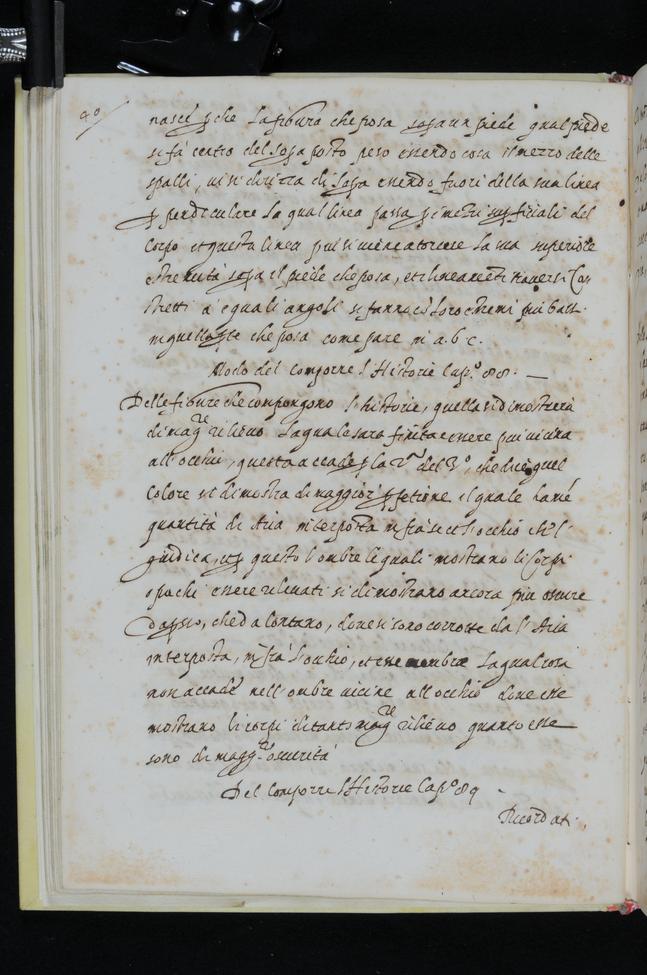 40
nasce p che la figura che posa sopa un piede qual piede
si fa centro del sopa posto peso essendo cosa il mezzo delle
spalli, ui si dirizza di sopa essendo fuori della sua linea
p pendiculare la qual linea passa p i mezzi supficiali del
Corpo et questa linea piu si uiene a torcere la sua superiore
estremità sopa il piede che posa, et i lineamenti trauersi Cos
tretti a eguali angoli si fanno co' loro estremi piu bassi
in quella pte che posa come pare in a. b. c.
Modo del comporre l'Historie Cap.º 88. —
Delle figure che compongono l'historie, quella si dimostrerà
di magre rilieuo la quale sarà finta essere piu uicina
all'occhio, questo accade p la 2.ª del 3.º, che dice quel
Colore si dimostra di maggior pfetione il quale ha mé
quantità di Aria interposta infra se et l'occhio che l
giudica, et p questo l'ombre le quali mostrano li Corpi
opachi essere rileuati si dimostrano ancora piu oscure
Dapsso, che da lontano, doue si sono corrotte da l'Aria
interposta, infrà l'occhio, et esse ombre la qual cosa
non accade nell'ombre uicine all'occhio doue esse
mostrano li corpi di tanto magre rilieuo quanto esse
sono di maggre oscurità
Del Comporre l'Historie Cap.º 89
Ricordati.